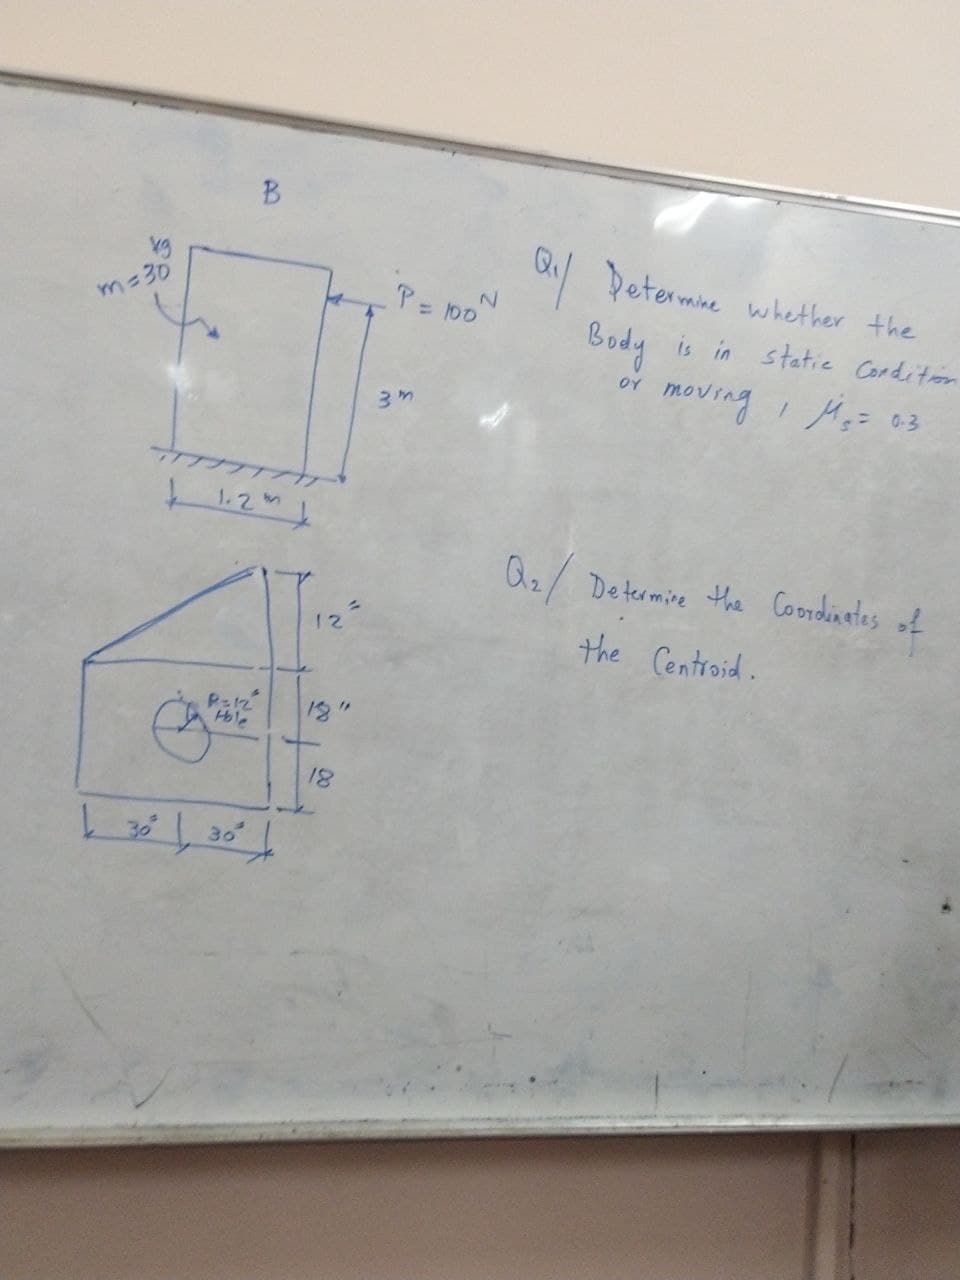 B
kg
m=30
P = 100 N
3 m
1.2 m
Q1/ Determine whether the
Body is in static Condition
or moving, μs = 0.3
Q2/ Determine the Coordinates of
the Centroid.
12"
R=12"
Hole
18"
18
30" 30"